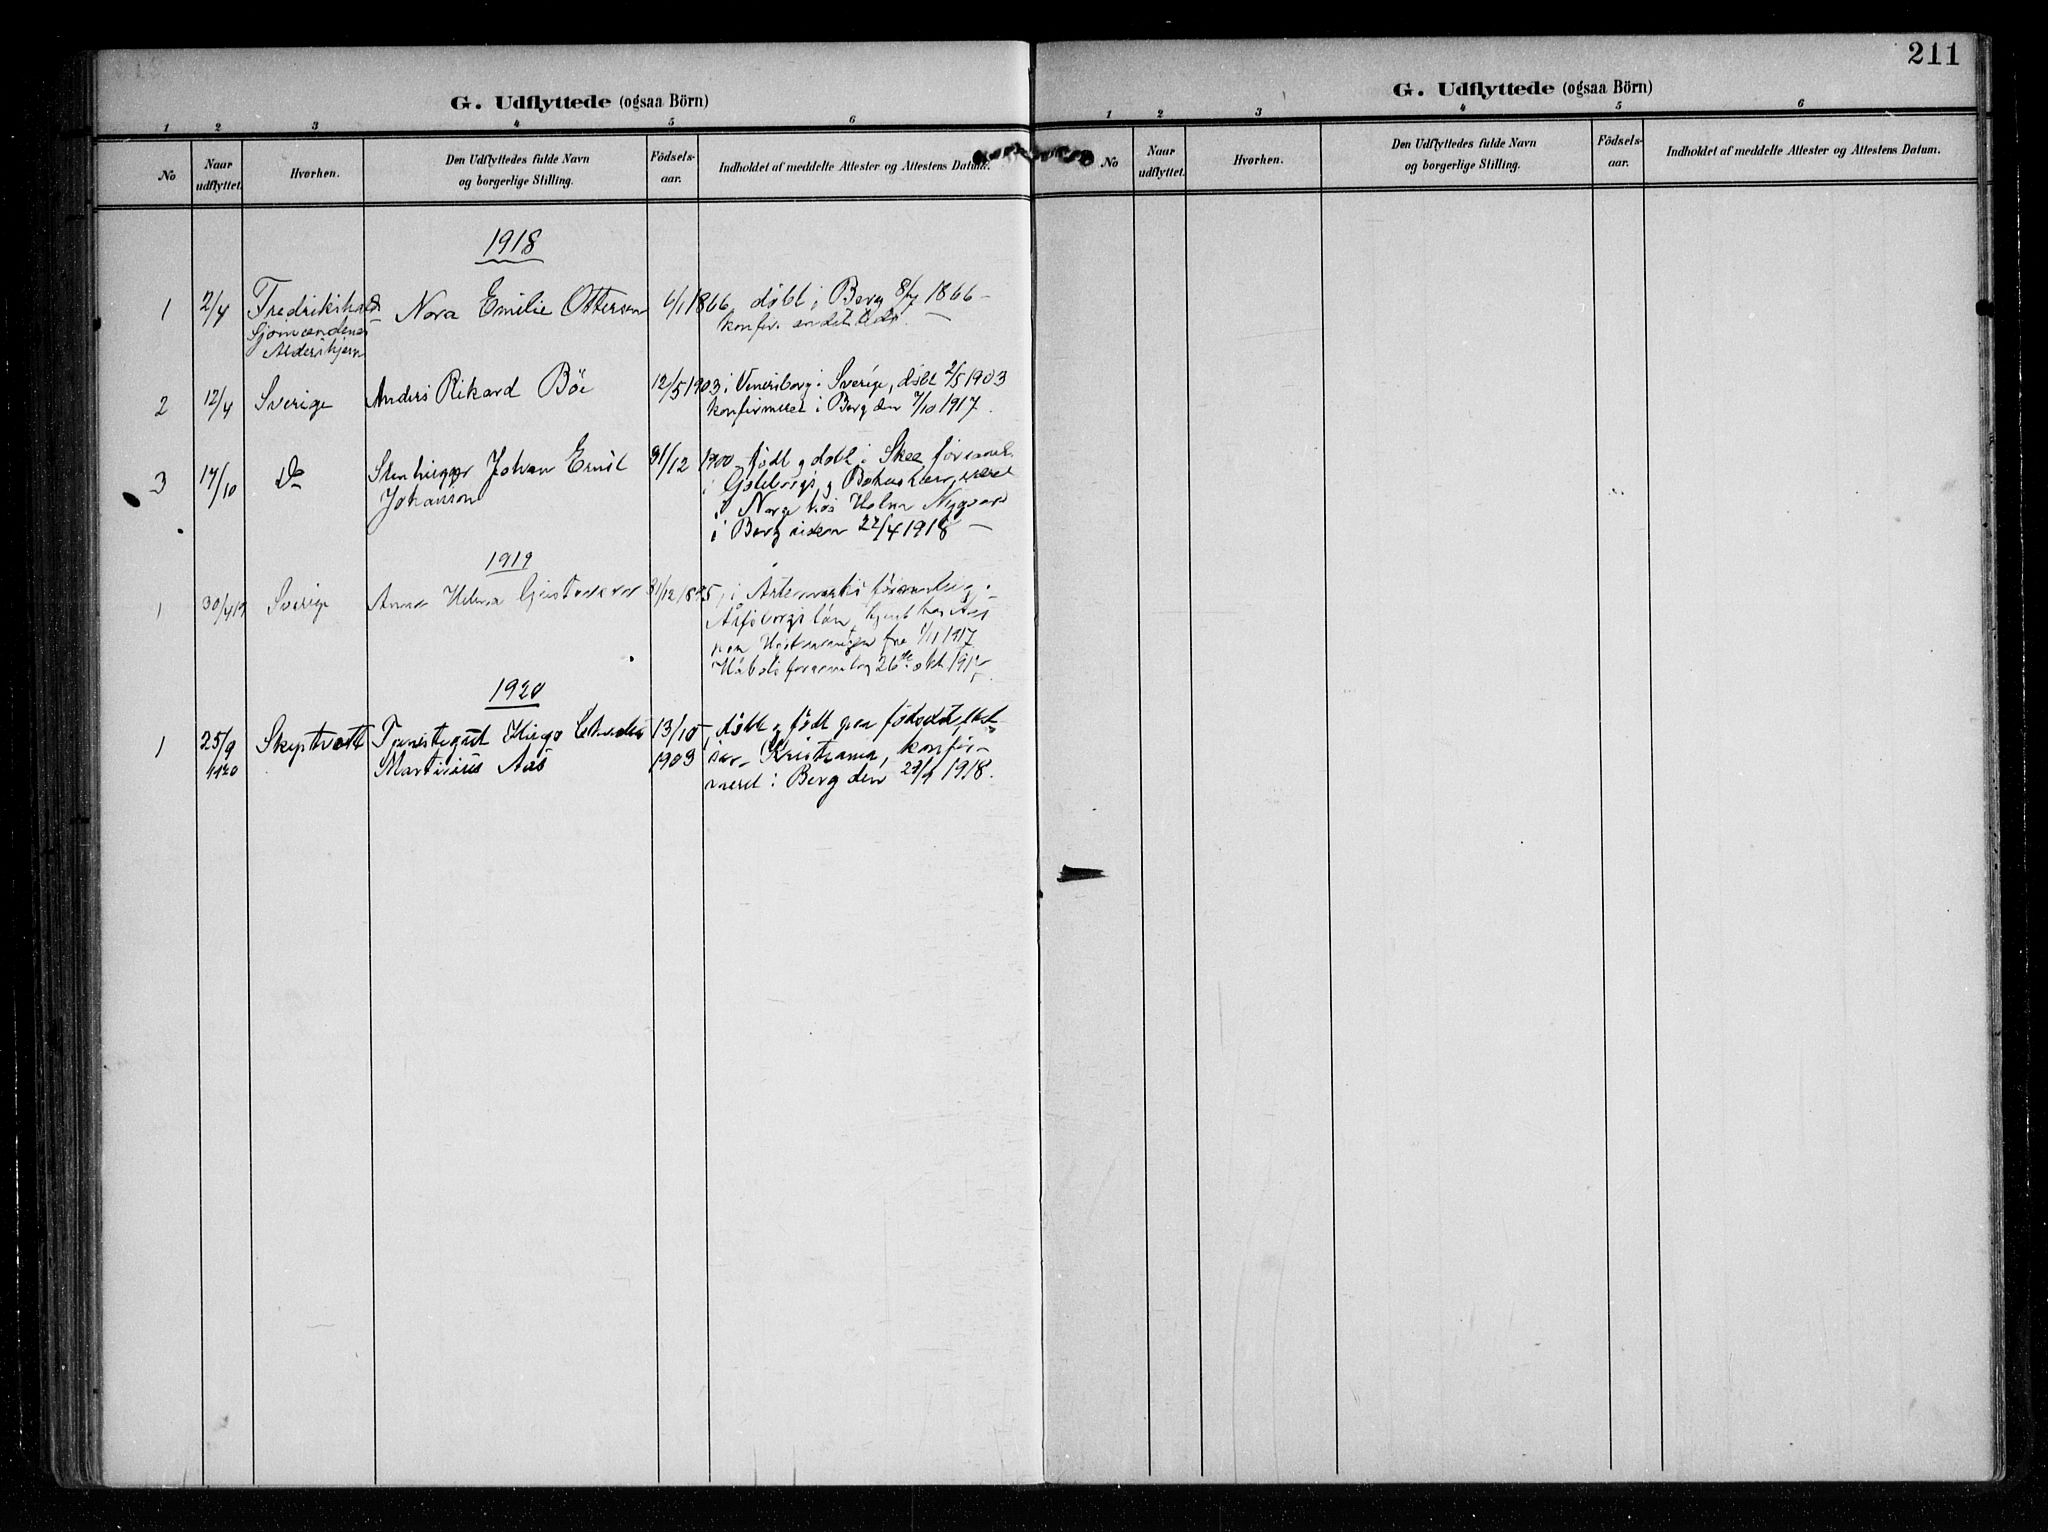 211
G. Udflyttede (ogsaa Börn)
1 2 3 4 5 6
No
Naar udflyttet.
Hvorhen.
Den Udflyttedes fulde Navn
og borgerlige Stilling.
Födsels-
aar.
Indholdet af meddelte Attester og Attestens Datum.
1918
1 2/4 Fredrikshald Nora Emilie Ottersen 6/1 1866 døbt i Berg 8/7 1866
Sjømændenes konfir.
Aldershjem
2 12/4 Sverige Anders Rikard Böe 12/5 1903 i Venersborg i Sverige, døbt 2/5 1903
konfirmeret i Berg den 7/10 1917.
3 17/10 Do Stenhugger Johan Ernst 31/12 1900 født og døbt i Skee
Johanson Gøteborgs og Bohuslæn, været
i Norge hos Nygaard
i Berg siden 22/4 1918
1919
1 30/4 19 Sverige Anna Helena 31/12 1875, i
fra 1/11 1917
26de okt.
1920
1 25/9 1920 Skiptvett Tjenestegut Hugo 13/10 døbt og født paa
Martinius Aas 1903 Kristiania, konfir-
meret i Berg den 29/9 1918.
G. Udflyttede (ogsaa Börn)
1 2 3 4 5 6
No
Naar
udflyttet.
Hvorhen.
Den Udflyttedes fulde Navn
og borgerlige Stilling.
Födsels-
aar.
Indholdet af meddelte Attester og Attestens Datum.